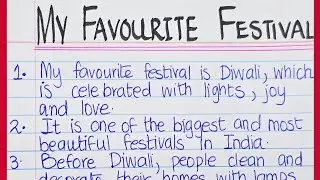 MY FAVOURITE FESTIVAL
1. My favourite festival is Diwali, which
is celebrated with lights, joy
and love.
2. It is one of the biggest and most
beautiful festivals in India.
3. Before Diwali, people clean and
decorate their homes with lamps